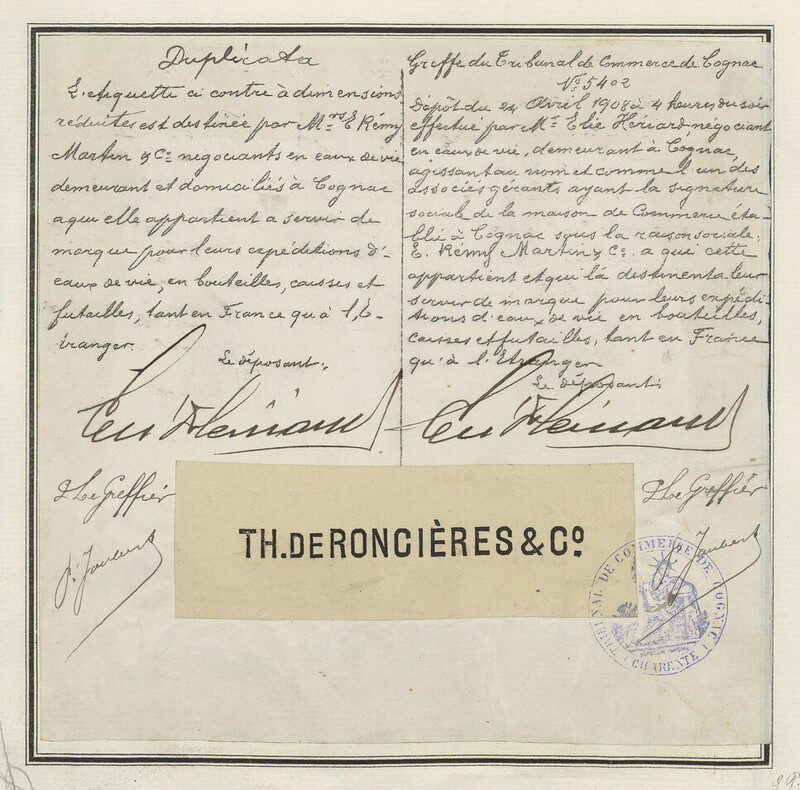 Duplicata
L'etiquette ci contre à dimensions
réduites est destinée par Mrs E Rémy
Martin & Co negociants en eaux de vie
demeurant et domiciliés à Cognac
a qui elle appartient a servir de
marque pour leurs expéditions d'-
eaux de vie, en bouteilles, caisses et
futailles, tant en France qu'à l'É-
tranger.
Le déposant.
Greffe du Tribunal de Commerce de Cognac
No 5402
Dépôt du 24 Avril 1908 à 4 heures du soir
effectué par Mr Elie Hériard négociant
en eaux de vie, demeurant à Cognac,
agissant au nom et comme l'un des
associés gérants, ayant la signature
sociale de la maison de Commerce éta-
blie à Cognac sous la raison sociale:
E. Rémy Martin & Co. a qui cette
appartient et qui l'a destinent a leur
servir de marque pour leurs expédi-
tions d'eaux de vie en bouteilles,
caisses et futailles, tant en France
qu'à l'Etranger
Le déposant
Le Greffier
Le Greffier
TH. DE RONCIÈRES & Co.
Joubert
Joubert
TRIBUNAL DE COMMERCE DE COGNAC
(CHARENTE)